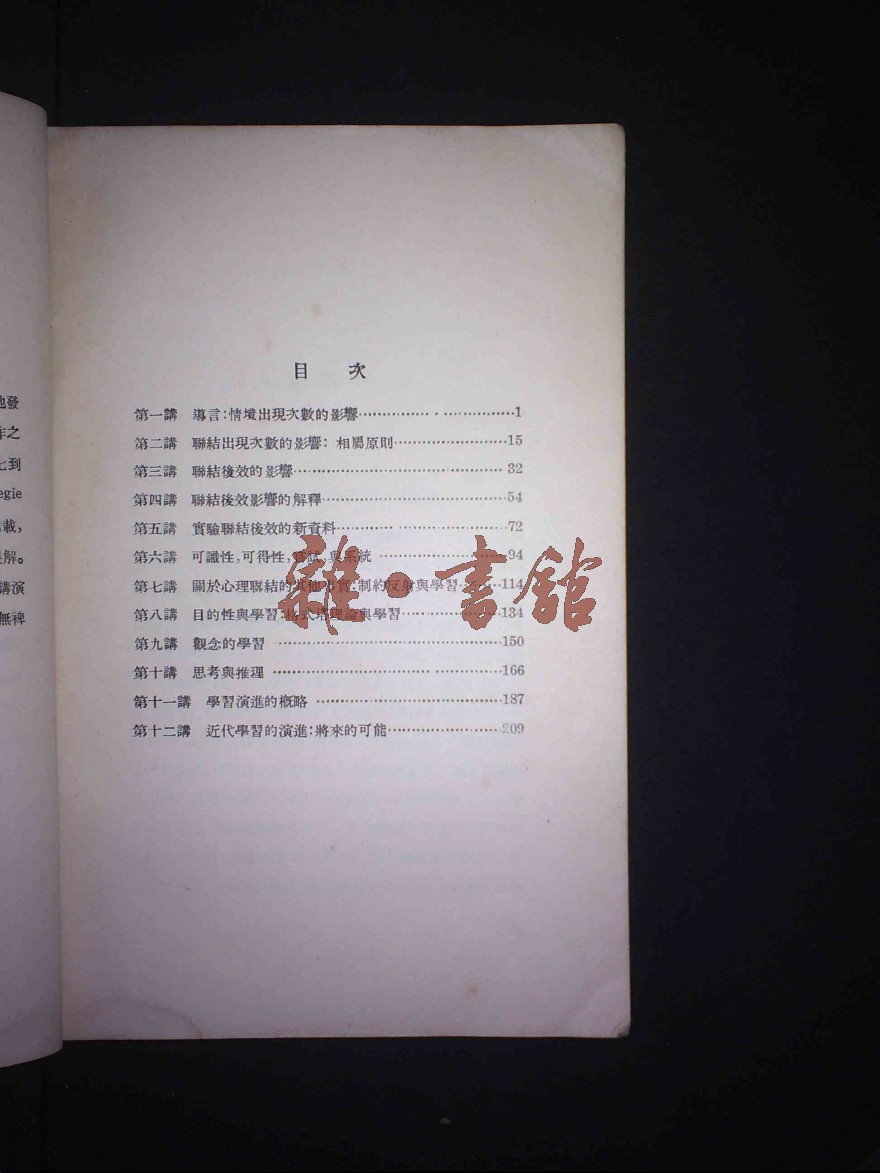 目 次
第一講 導言:情境出現次數的影響……………1
第二講 聯結出現次數的影響: 相屬原則……………15
第三講 聯結後效的影響……………32
第四講 聯結後效影響的解釋……………54
第五講 實驗聯結後效的新資料……………72
第六講 可識性,可得性,嘗試,與系統……………94
第七講 關於心理聯結的其他事實:制約反射與學習……………114
第八講 目的性與學習:格式塔理論與學習……………134
第九講 觀念的學習……………150
第十講 思考與推理……………166
第十一講 學習演進的概略……………187
第十二講 近代學習的演進:將來的可能……………209
雜·書館
發
之
到
egie
載,
解。
講演
無裨